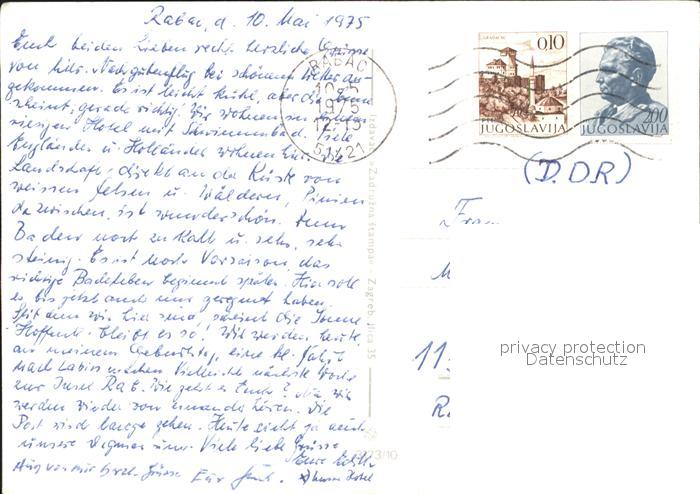 Rabac, d. 10. Mai 1975
Euch beiden Lieben recht herzliche Grüsse
von hier. Nach gutem Flug bei schönem Wetter an-
gekommen. Es ist leicht kühl, aber die Sonne
scheint, gerade richtig. Wir wohnen in einem
riesigen Hotel mit Schwimmbad. Viele
Engländer u. Holländer wohnen hier. Die
Landschaft, direkt an der Küste von
weissen Felsen u. Wäldern, Pinien
dazwischen, ist wunderschön. Zum
Baden noch zu kalt u. sehr, sehr
steinig. Es ist noch Vorsaison, das
richtige Badeleben beginnt später. Hier soll
es bis jetzt auch nur geregnet haben.
Seit dem wir hier sind, scheint die Sonne.
Hoffentl. bleibt es so! Wir werden heute,
an meinem Geburtstag, eine kl. Fahrt
nach Labin machen. Vielleicht nächste Woche
zur Insel Rab. Wie geht es Euch?
werden wieder von einander hören. Die
Post wird lange gehen. Heute
unsere Viele liebe Grüsse
Eure
Auch von mir herzl. Grüsse
unser Hotel
RABAC
10-5
1975
12-13
51421
GRADAČAC
0,10
JUGOSLAVIJA
2,00
JUGOSLAVIJA
(D.D.R)
M
11
R
Izdavač: »Zadružna štampa« - Zagreb,
ilica 35
3773/10
privacy protection
Datenschutz